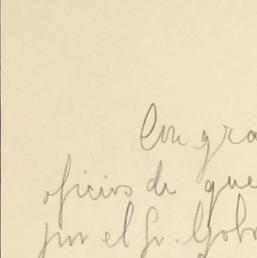 Con gra
oficios de que
por el Sr. Gobr